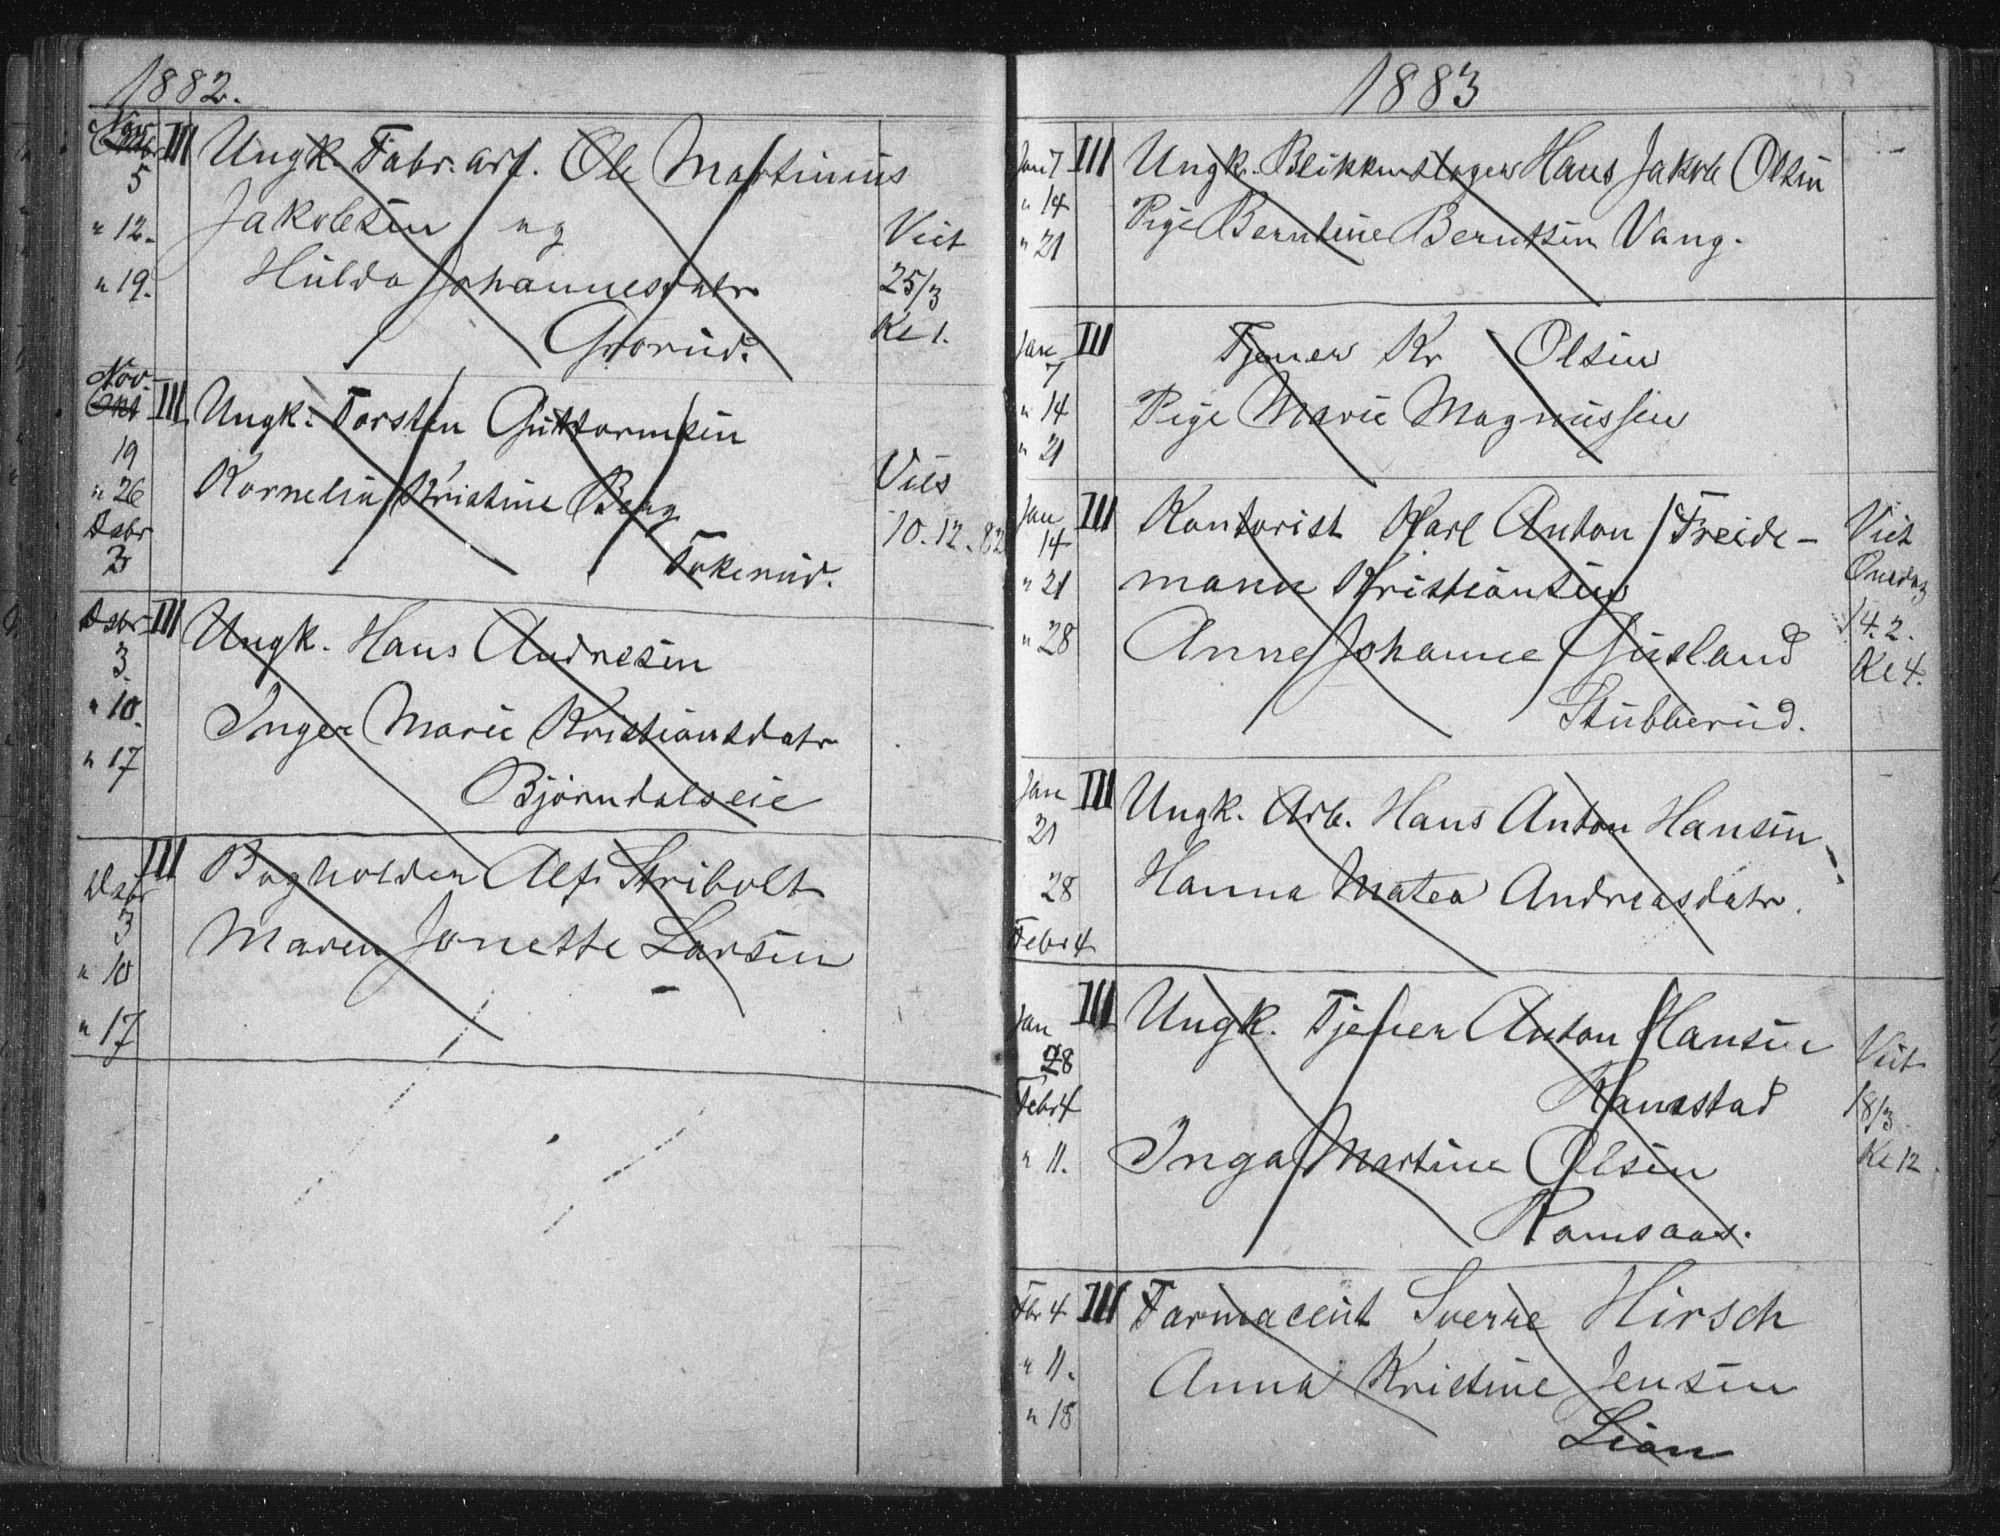 1882.
Nov III Ungk. Fabr. arb. Ole Martinius
5
" 12. Jakobsen og Viet
" 19. Hulda Johannesdatr 25/3
Grorud. Kl 1.
Nov. III Ungk. Torsten Guttormsen
19
" 26 Kornelia Kristine Berg Vies
Dsbr 10.12.82
3 Tokerud.
Dsbr III Ungk. Hans Andresen
3.
" 10. Inger Marie Kristiansdatr
" 17 Bjørndalseie
Dsbr III Bogholder Alf Stribolt
3
" 10 Maren Jonette Larsen
" 17
1883
Jan 7 III Ungk. Blikkenslager Hans Jakob Olsen
" 14 Pige Berntine Berntsen Vang.
" 21
Jan III Tjener Kr Olsen
7
" 14 Pige Marie Magnussen
" 21
Jan III Kontorist Karl Anton Freide- Viet
14
" 21 mann Kristiansen Onsdag
" 28 Anne Johanne Gusland 14.2.
Stubberud. Kl 4.
Jan III Ungk. Arb. Hans Anton Hansen
21
28 Hanna Matea Andreasdatr.
Febr 4
Jan III Ungk. Tjener Anton Hansen Viet
28
Febr 4 Ramstad 18/3.
" 11. Inga Martine Olsen Kl 12.
Ramsaas.
Fbr 4 III Farmaceut Sverre Hirsch
" 11. Anna Kristine Jensen
" 18 Lian